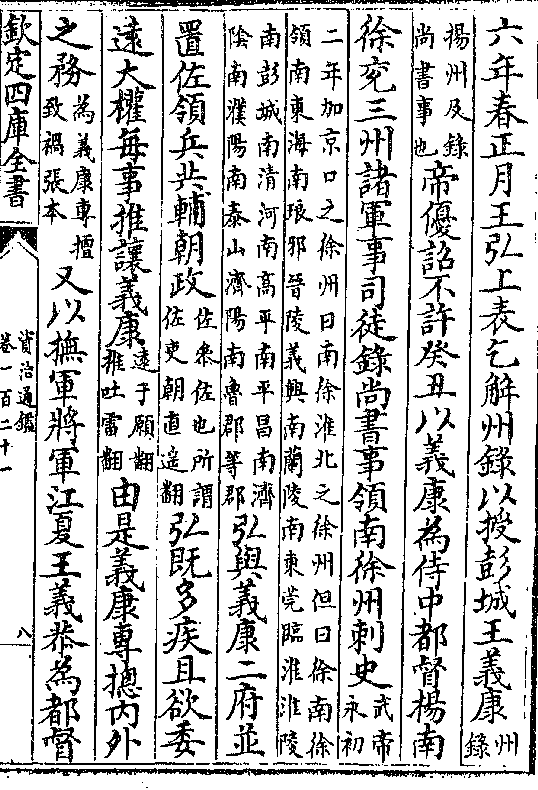 六年春正月王弘上表乞解州錄以授彭城王義康州錄
揚州及錄尚書事也帝優詔不許癸丑以義康為侍中都督揚南
徐兖三州諸軍事司徒錄尚書事領南徐州刺史武帝永初
二年加京口之徐州曰南徐淮北之徐州但曰徐南徐
領南東海南琅邪晉陵義興南蘭陵南東莞臨淮淮陵
南彭城南清河南高平南平昌南濟
陰南濮陽南泰山濟陽南魯郡等郡弘與義康二府並
置佐領兵共輔朝政佐參佐也所謂佐吏朝直遥翻弘既多疾且欲委
遠大權每事推讓義康遠于願翻推吐雷翻由是義康專摠内外
之務為義康專擅致禍張本又以撫軍將軍江夏王義恭為都督
欽定四庫全書
資治通鑑
卷一百二十一
八